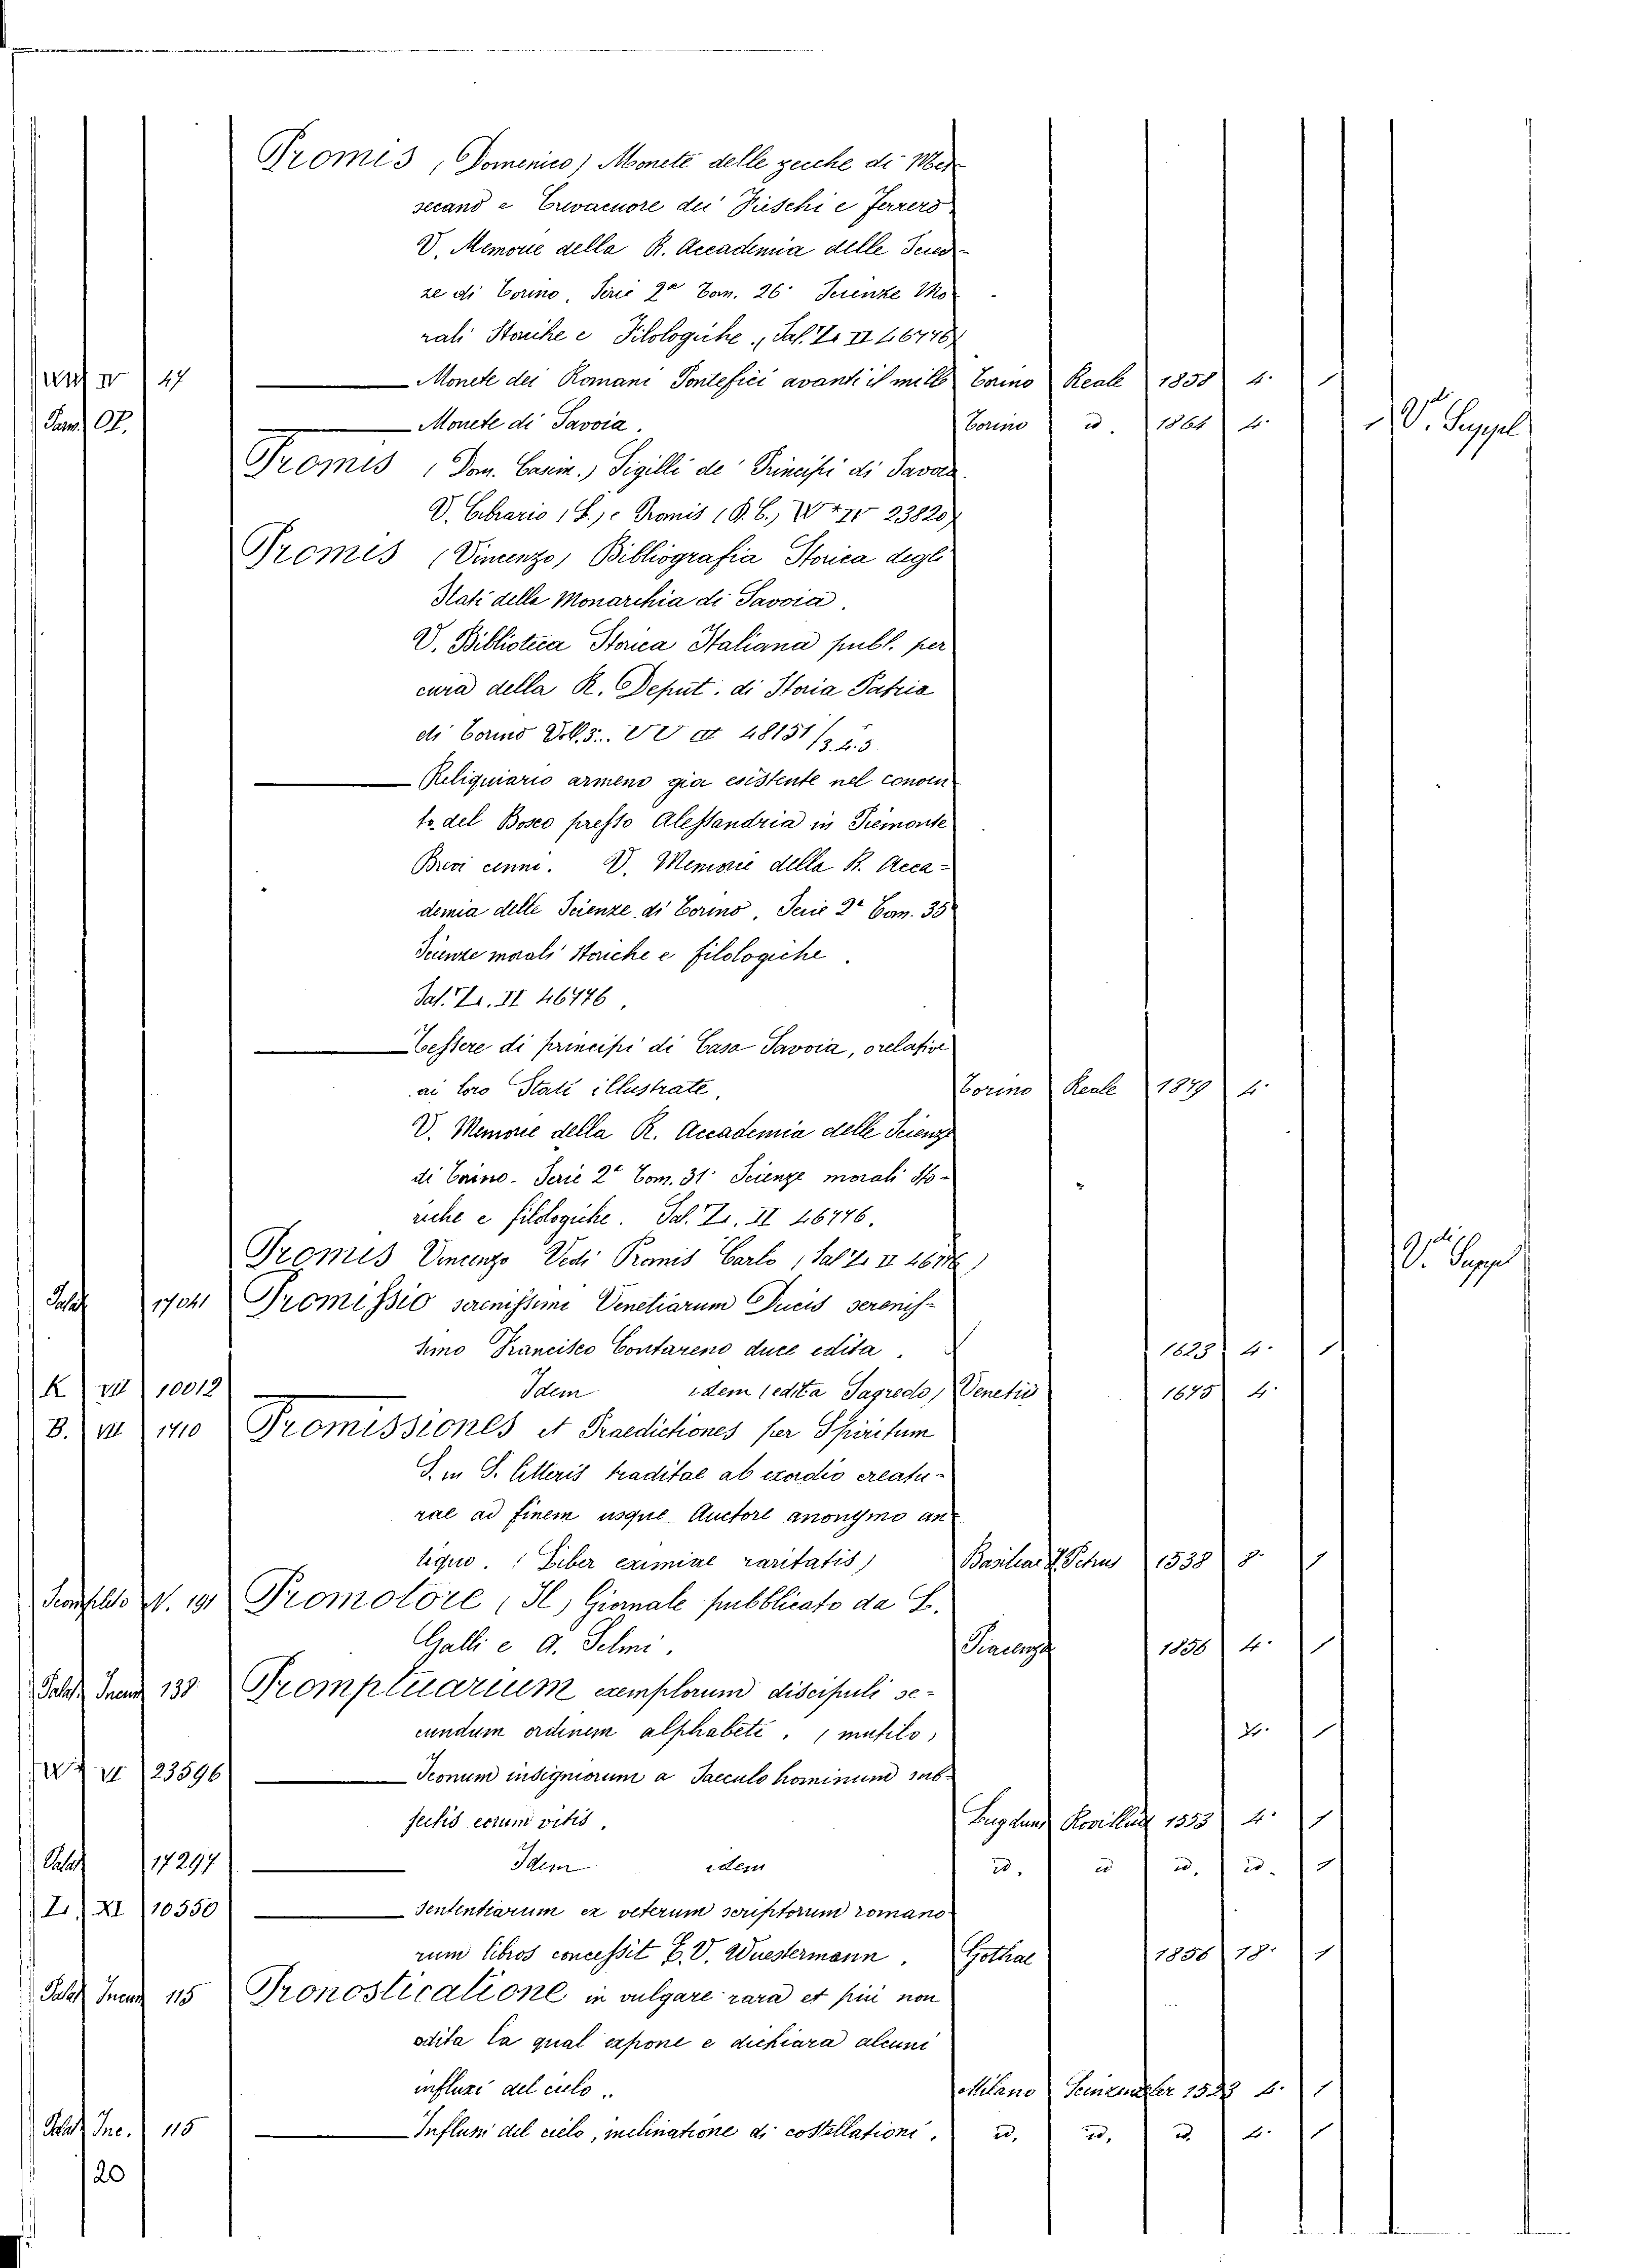 Promis (Domenico) Monete delle zecche di Mes
serano e Crevacuore dei Fieschi e Ferrero
V. Memorie della R. Accademia delle Scien-
ze di Torino, Serie 2a Tom. 26 Scienze Mo-
rali Storiche e Filologiche, (Sal. Zr. II 46776)
IV 47 Monete dei Romani Pontefici avanti il mille Torino Reale 1858 4. 1
OP. Monete di Savoia. Torino id. 1864 4. V. Suppel
Promis (Dom. Casim.) Sigilli de' Principi di Savoia.
V. Cibrario (L.) e Promis (D. C.) 23820
Promis (Vincenzo) Bibliografia Storica degli
Stati della Monarchia di Savoia.
V. Biblioteca Storica Italiana publ. per
cura della R. Deput. di Storia Patria
di Torino Vol. 3. 48151/3.4.5
Reliquiario armeno già esistente nel conven
to del Bosco presso Alessandria in Piemonte
Brevi cenni. V. Memorie della R. Acca=
demia delle Scienze di Torino, Serie 2a Tom. 35
Scienze morali storiche e filologiche.
Sal. Zr. II 46776,
Tessere di principi di Casa Savoia, o relative
ai loro Stati illustrate, Torino Reale 1879 4.
V. Memorie della R. Accademia delle Scienze
di Torino. Serie 2a Tom. 31 Scienze morali sto-
riche e filologiche. Sal. Zr. II 46776.
Promis Vincenzo Vedi Promis Carlo (Sal Zr II 46776) V. Suppel
Palat 17041 Promissio serenissimi Venetiarum Ducis serenis-
simo Francisco Contareno duce edita. 1623 4. 1
K VII 10012 Idem idem (edita Sagredo) Venetiis 1675 4.
B. VII 1710 Promissiones et Praedictiones per Spiritum
S. in S. litteris traditae ab exordio creatu-
rae ad finem usque Auctore anonymo an
tiquo. (Liber eximiae raritatis) Basileae 1538 8. 1
N. 191 Promotore (Il) Giornale pubblicato da L.
Galli e A. Selmi. Piacenza 1856 4. 1
Palat Incun 138 Promptuarium exemplorum discipuli se-
cundum ordinem alphabeti. (mutilo) 1
VI 23596 Iconum insigniorum a saeculo hominum sub-
jectis eorum vitis. Lugduni Rovillius 1553 4. 1
Palat 17297 Idem idem id. id id. id. 1
Z. XI 10550 Sententiarum ex veterum scriptorum romano
rum libros concessit E. V. Wuestermann. Gothae 1856 18. 1
Palat Incun 115 Pronosticatione in vulgare rara et più non
odita la qual expone e dichiara alcuni
influxi del cielo.. Milano 1523 4. 1
Palat Inc. 115 Influxi del cielo, inclinatione di costellationi. id. id. id. 4. 1
20